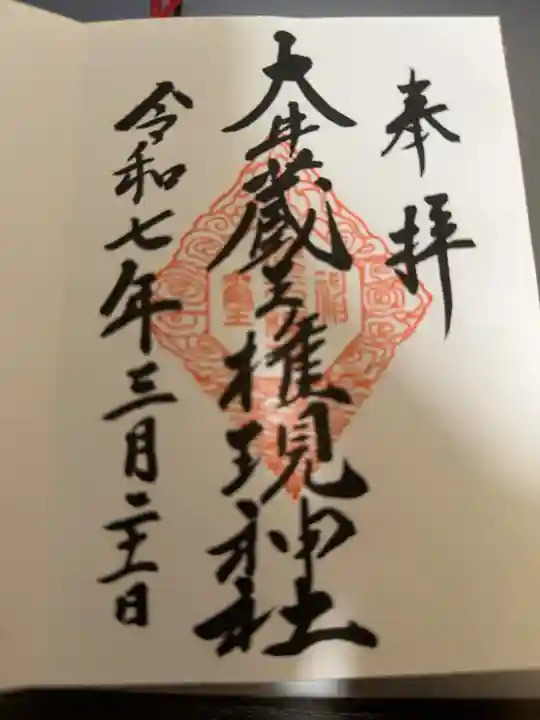 奉拝
大井蔵王権現神社
令和七年三月二十一日